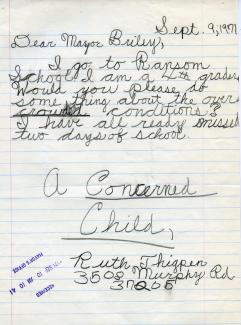 Sept. 9, 1971
Dear Mayor Briley,
I go to Ransom
School I am a 4th grader
Would you please do
some thing about the over
crowded conditions?
I have all ready missed
two days of school.
A Concerned
Child,
Ruth Thigpen
3508 Murphy Rd
37205
MAYOR'S OFFICE
RECEIVED